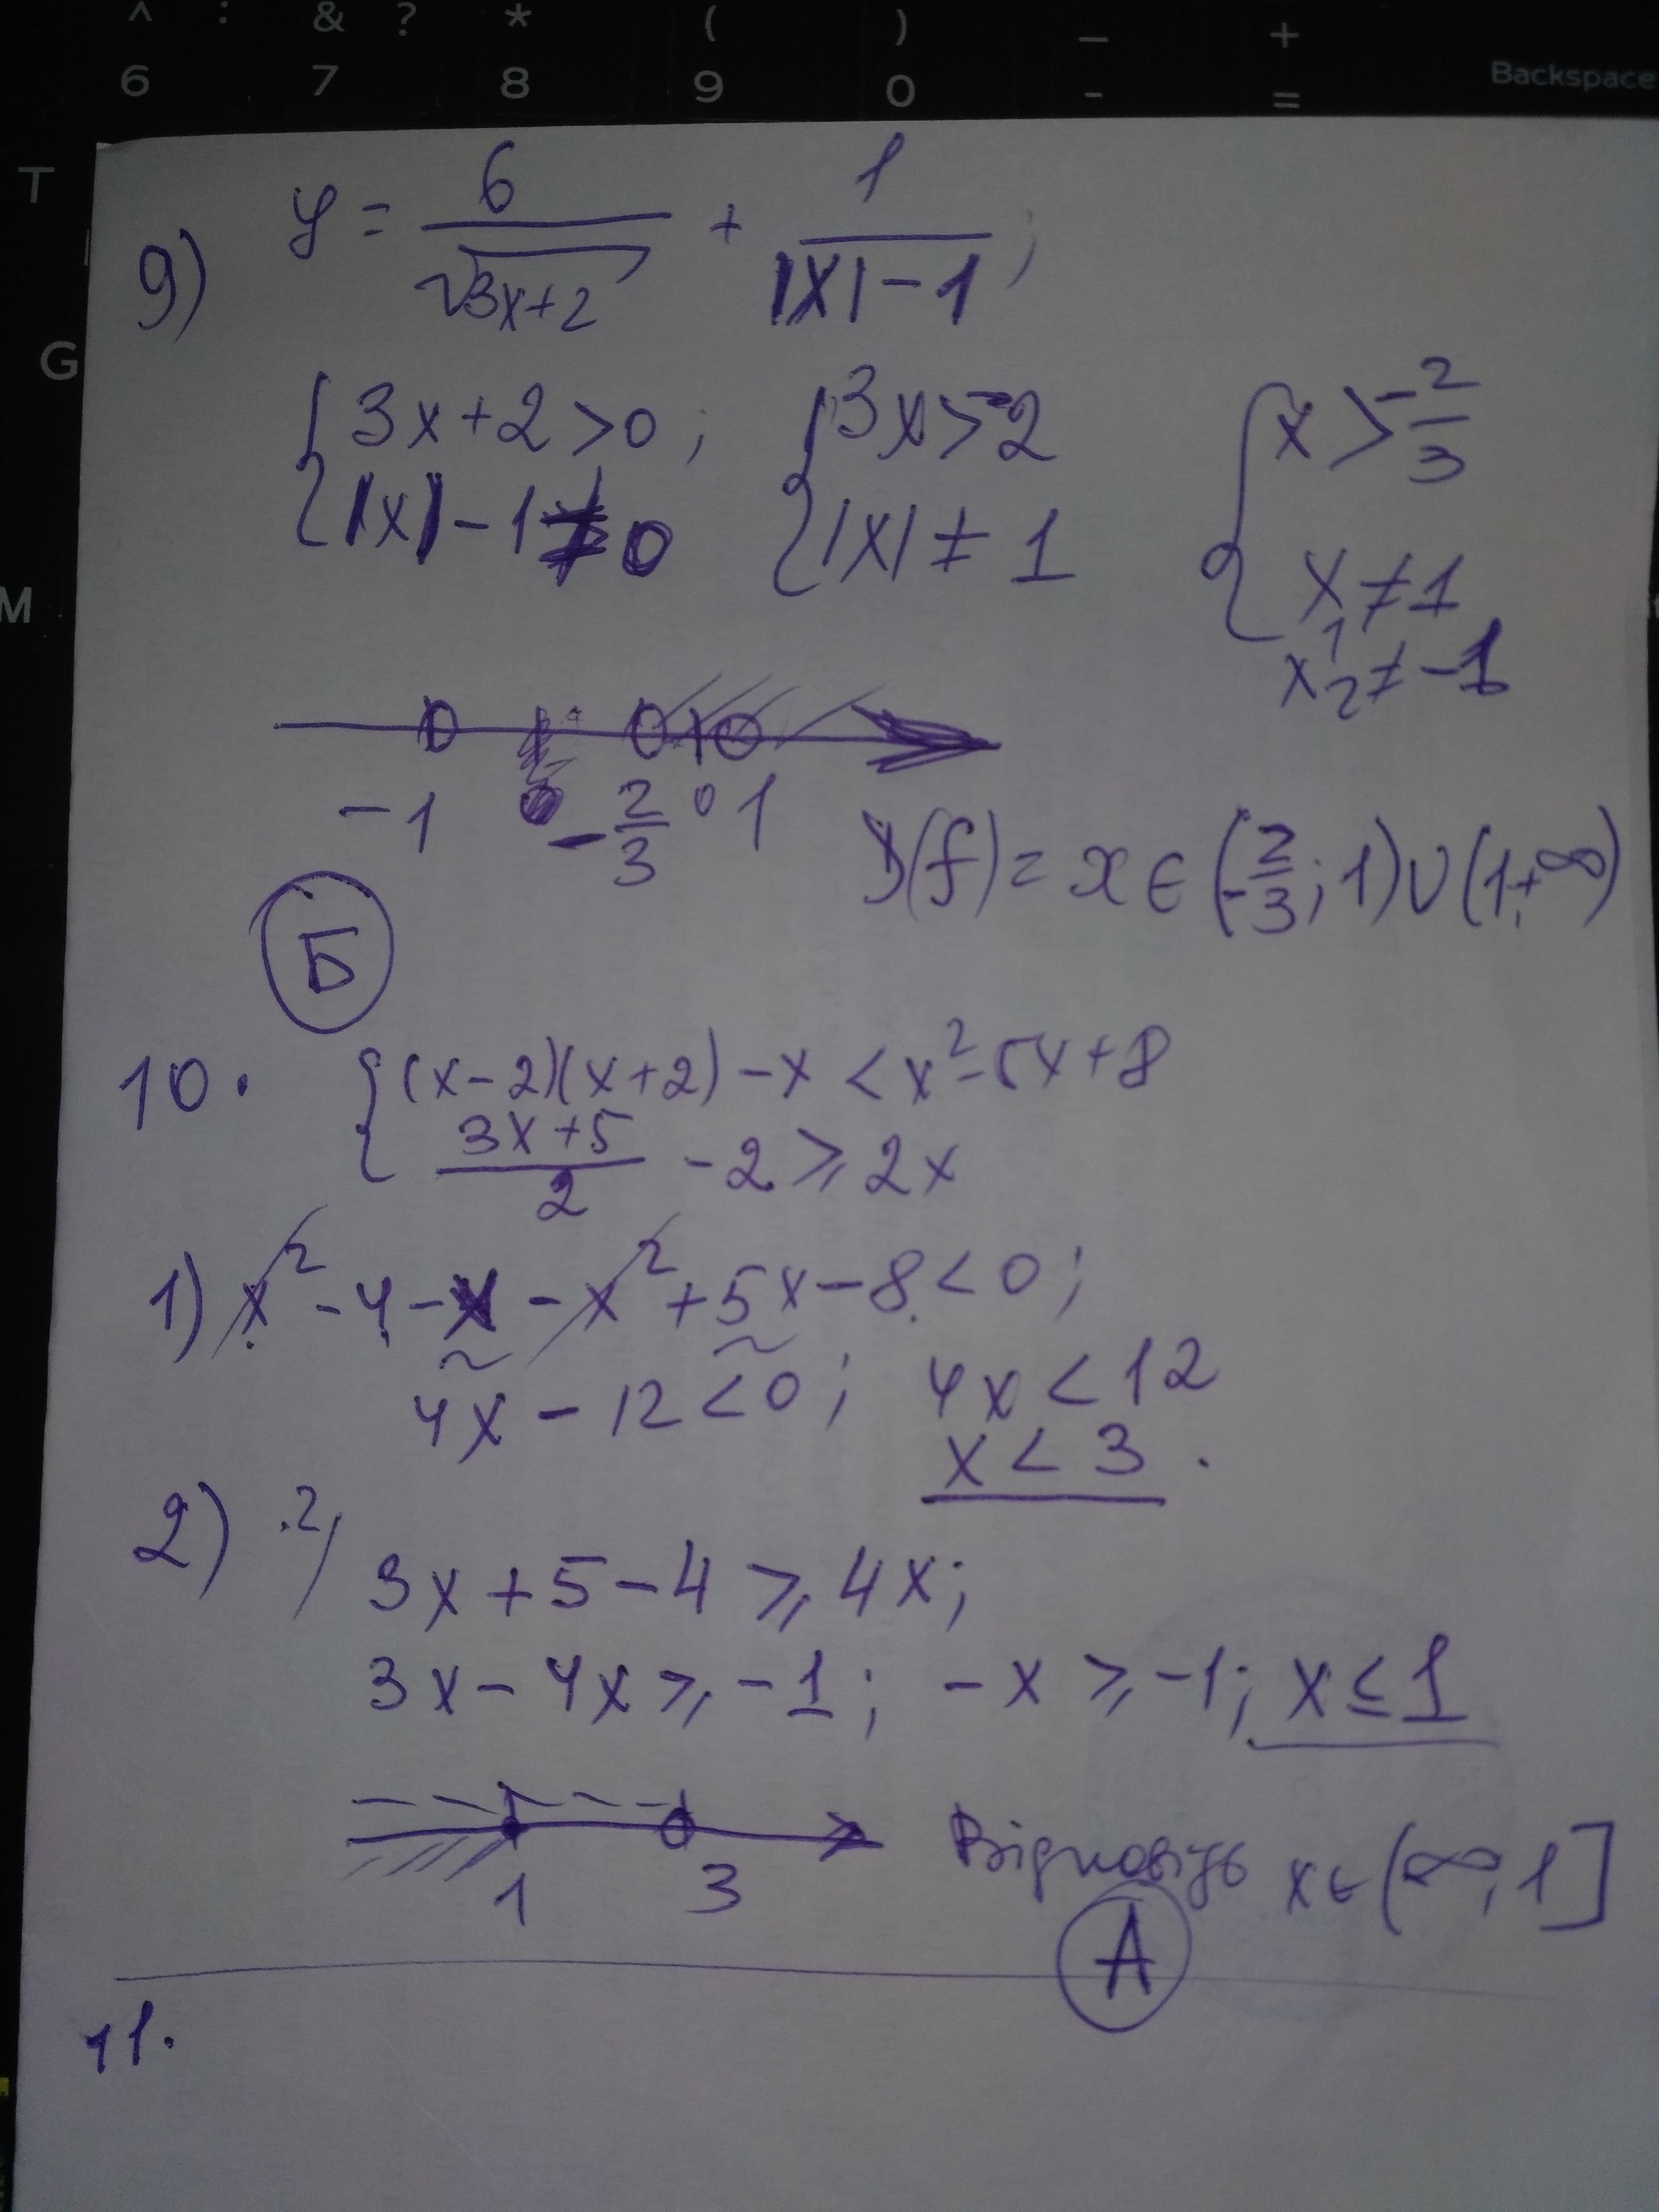 ^ : & ? * ( ) _ +
6 7 8 9 0 - = Backspace
T
G
M
9) y = 6/√(3x+2) + 1/(|x|-1);
{ 3x+2>0; { 3x>-2 { x>-2/3
|x|-1≠0 |x|≠1 x₁≠1
x₂≠-1
-1 -2/3 0 1
D(f)= x∈(-2/3;1)∪(1;+∞)
Б
10. { (x-2)(x+2)-x<x²-5x+8
(3x+5)/2 -2⩾2x
1) x²-4-x-x²+5x-8<0;
4x-12<0; 4x<12
x<3.
2) ·2/ 3x+5-4⩾4x;
3x-4x⩾-1; -x⩾-1; x≤1
1 3 Відповідь x∈(∞;1]
А
11.